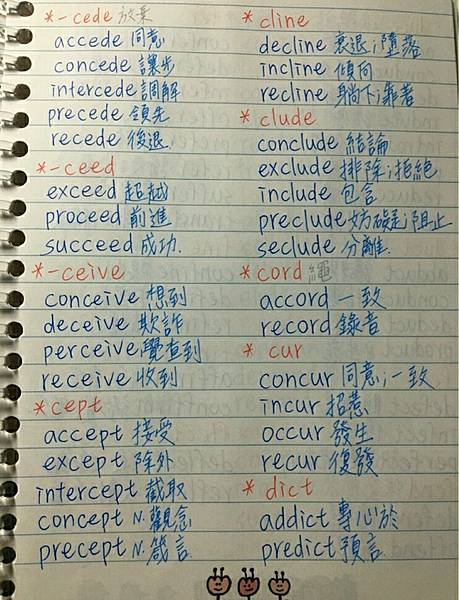 *-cede 放棄
accede 同意
concede 讓步
intercede 調解
precede 領先
recede 後退.
*-ceed
exceed 超越
proceed 前進
succeed 成功.
*-ceive
conceive 想到
deceive 欺詐
perceive 覺查到
receive 收到
*cept
accept 接受
except 除外
intercept 截取
concept N. 觀念
precept N. 箴言
* cline
decline 衰退;墮落
incline 傾向
recline 躺下;靠著
* clude
conclude 結論
exclude 排除;拒絕
include 包含
preclude 妨礙;阻止
seclude 分離.
*cord 繩
accord 一致
record 錄音
* cur
concur 同意;一致
incur 招惹
occur 發生
recur 復發
* dict
addict 專心於
predict 預言